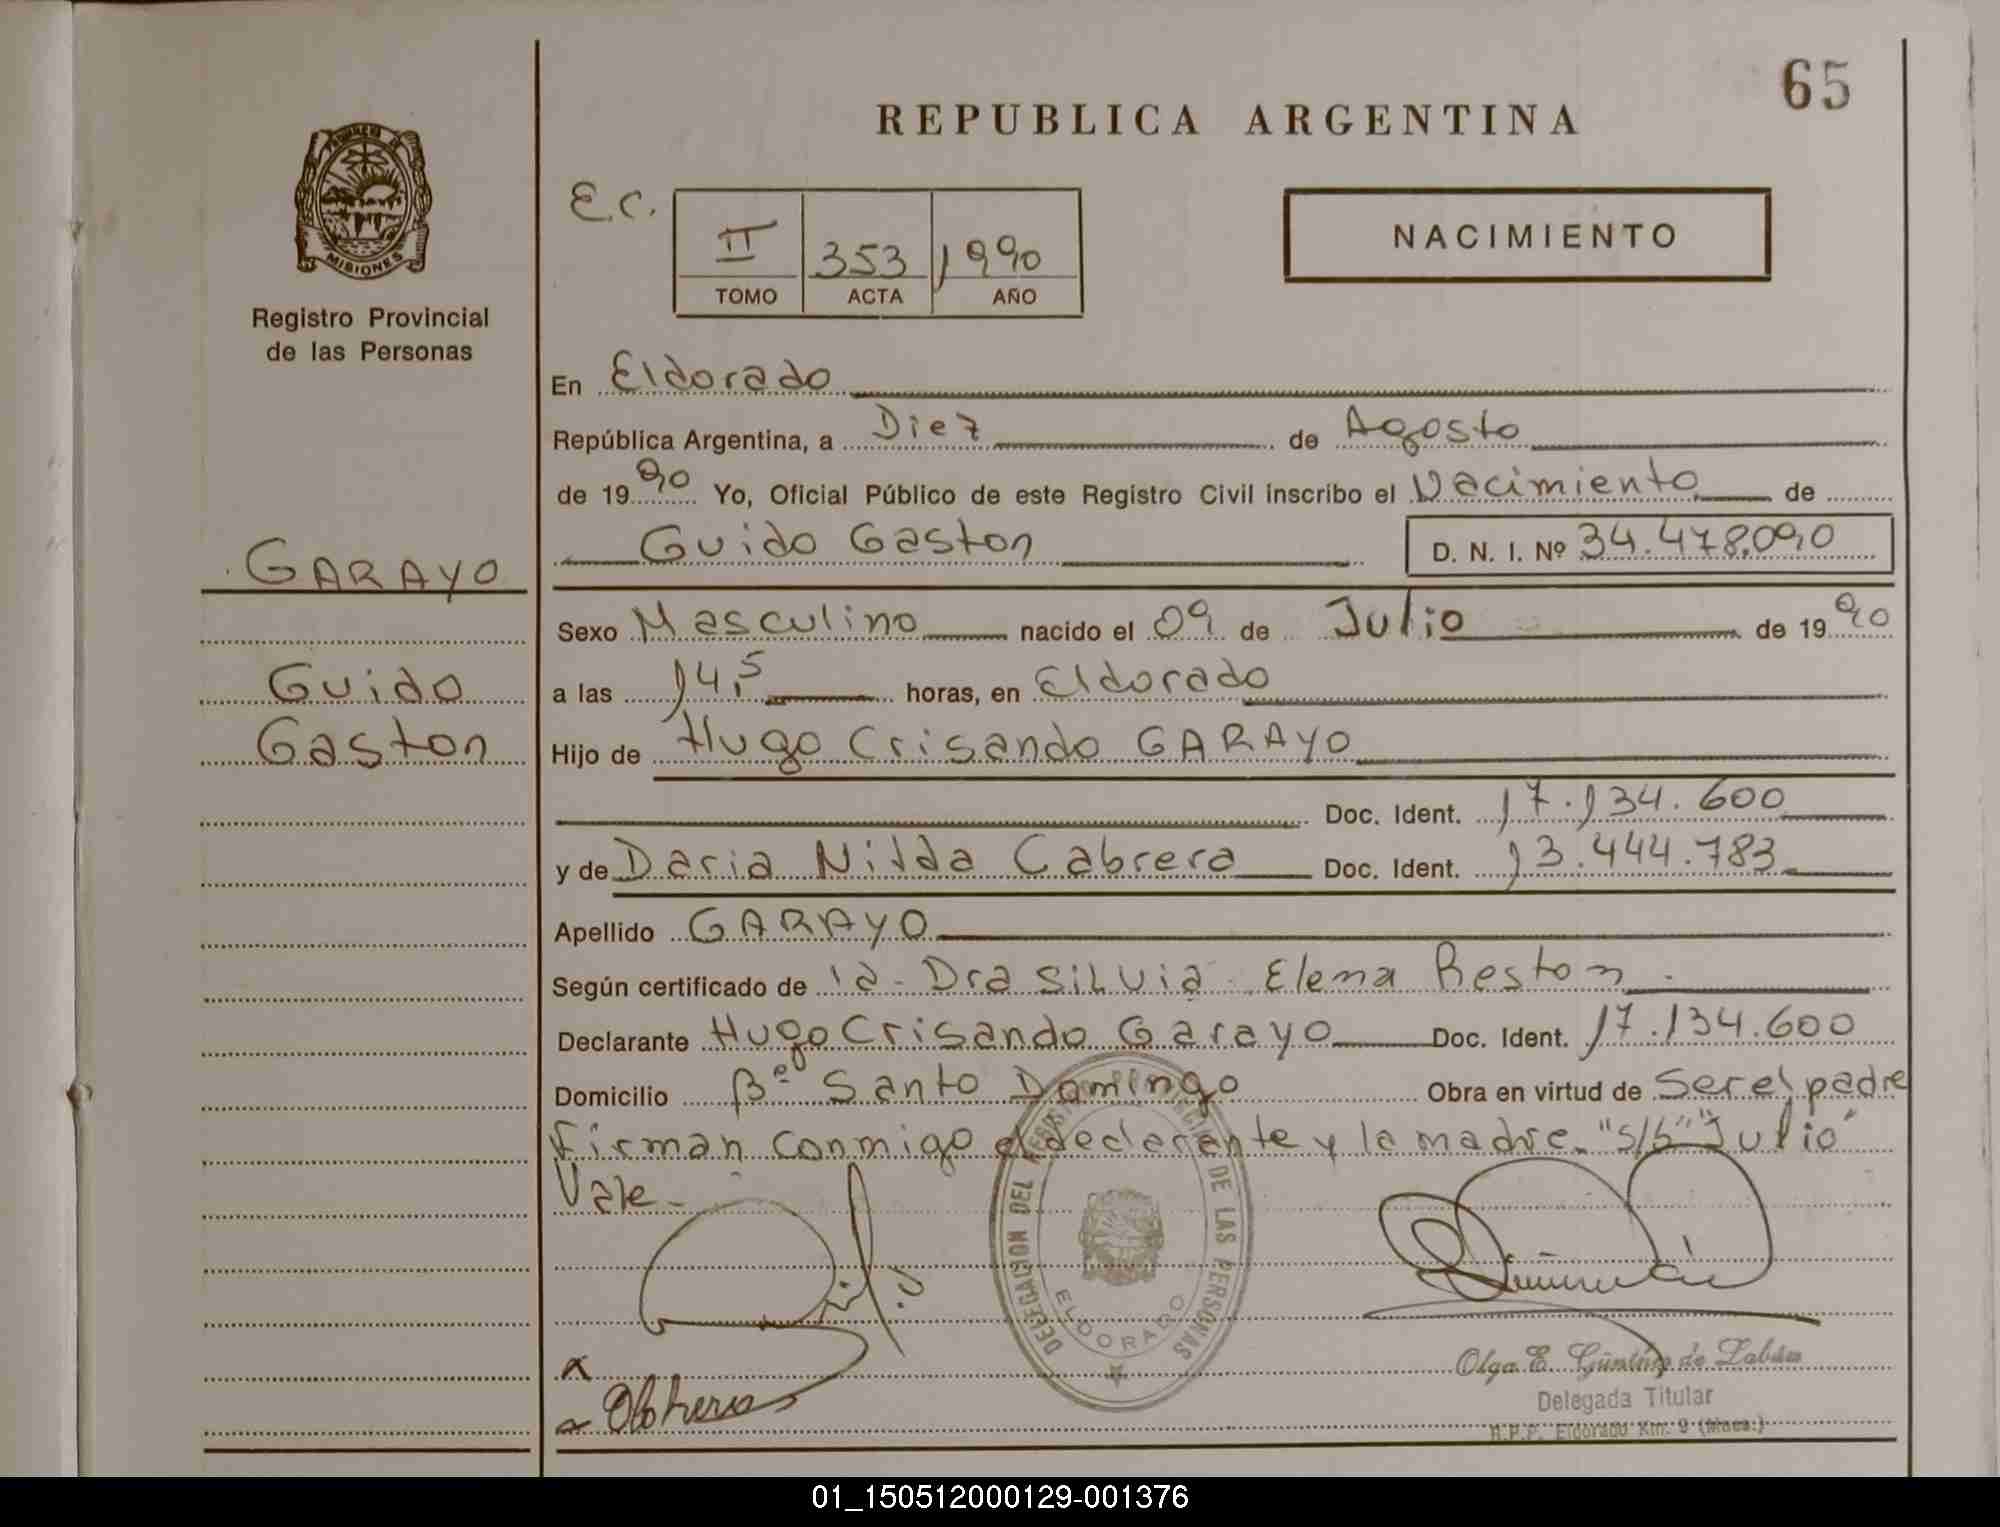 65
REPUBLICA ARGENTINA
PROVINCIA DE
MISIONES
Registro Provincial
de las Personas
E.C.
II 353 1990
TOMO ACTA AÑO
NACIMIENTO
En Eldorado
República Argentina, a Diez de Agosto
de 1990 Yo, Oficial Público de este Registro Civil inscribo el Nacimiento de
Guido Gaston D. N. I. Nº 34.478.090
GARAYO
Guido
Gaston
Sexo Masculino nacido el 09 de Julio de 1990
a las 14,5 horas, en Eldorado
Hijo de Hugo Crisando GARAYO
Doc. Ident. 17.134.600
y de Daria Nilda Cabrera Doc. Ident. 13.444.783
Apellido GARAYO
Según certificado de la Dra Silvia Elena Reston
Declarante Hugo Crisando Garayo Doc. Ident. 17.134.600
Domicilio Bº Santo Domingo Obra en virtud de Ser el padre
Firman conmigo el declarante y la madre. "S/b" "Julio"
Vale-
DELEGACION DEL REGISTRO PROVINCIAL DE LAS PERSONAS
ELDORADO
Olga E. de
Delegada Titular
R.P.P. Eldorado Km. 9 (Mnes.)
01_150512000129-001376